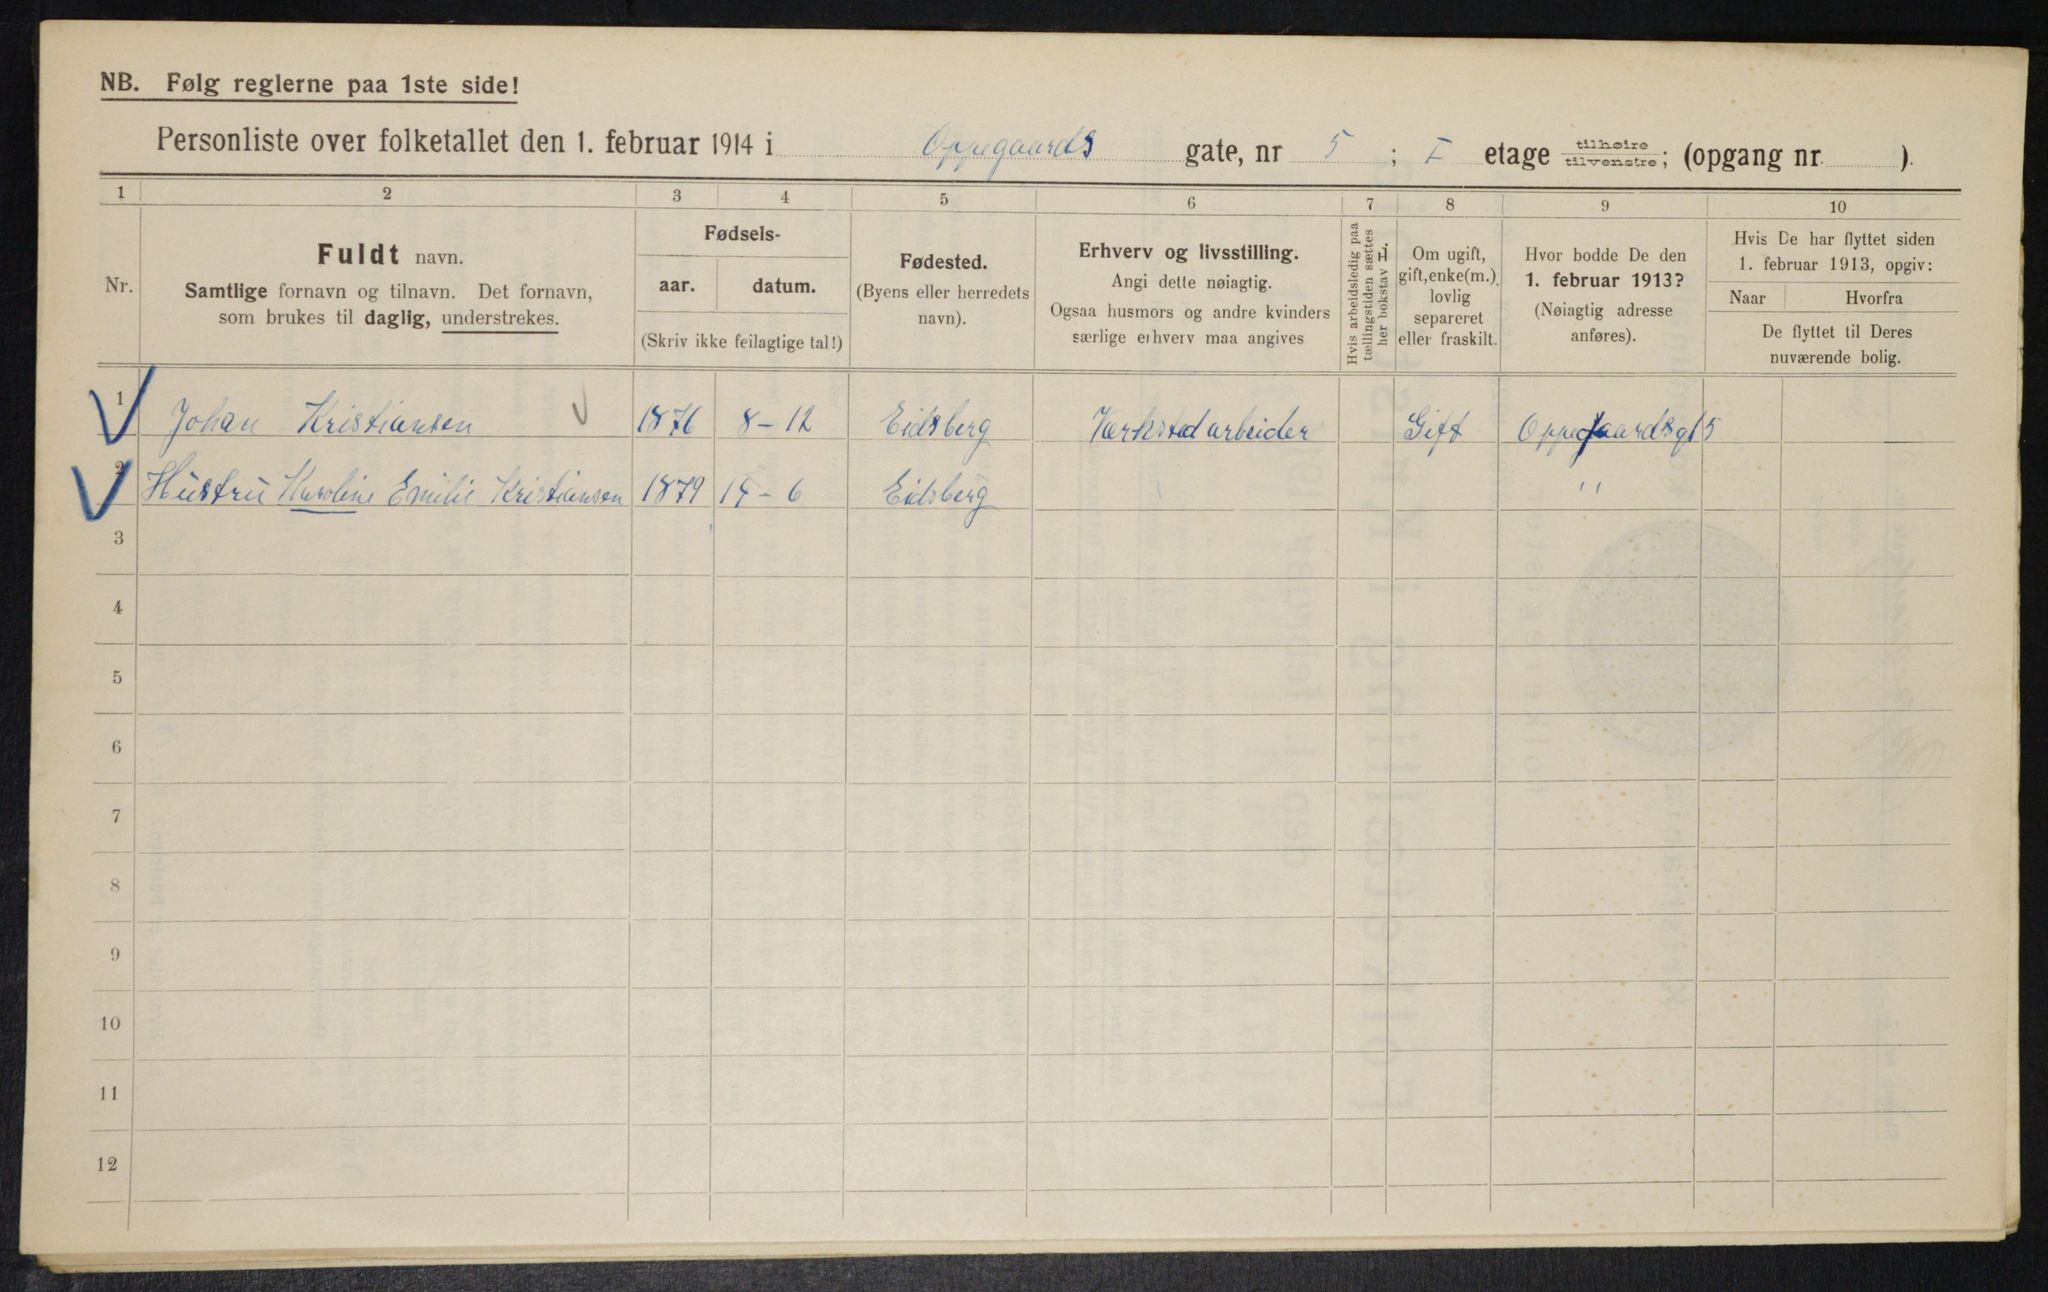 NB. Følg reglerne paa 1ste side!
Personliste over folketallet den 1. februar 1914 i Oppegaards gate, nr 5 ; I etage tilhøire tilvenstre; (opgang nr. ).
1 2 3 4 5 6 7 8 9 10
Nr.
Fuldt navn.
Samtlige fornavn og tilnavn. Det fornavn,
som brukes til daglig, understrekes.
Fødsels-
aar. datum.
(Skriv ikke feilagtige tal!)
Fødested.
(Byens eller herredets
navn).
Erhverv og livsstilling.
Angi dette nøiagtig.
Ogsaa husmors og andre kvinders
særlige erhverv maa angives
Hvis arbeidsledig paa
tællingstiden sættes
her bokstav L.
Om ugift,
gift, enke(m.),
lovlig
separeret
eller fraskilt.
Hvor bodde De den
1. februar 1913?
(Nøiagtig adresse
anføres).
Hvis De har flyttet siden
1. februar 1913, opgiv:
Naar Hvorfra
De flyttet til Deres
nuværende bolig.
1 Johan Kristiansen 1876 8-12 Eidsberg Værksted arbeider Gift Oppegaardsgt 5
2 Hustru Karoline Emilie Kristiansen 1879 14-6 Eidsberg "
3
4
5
6
7
8
9
10
11
12